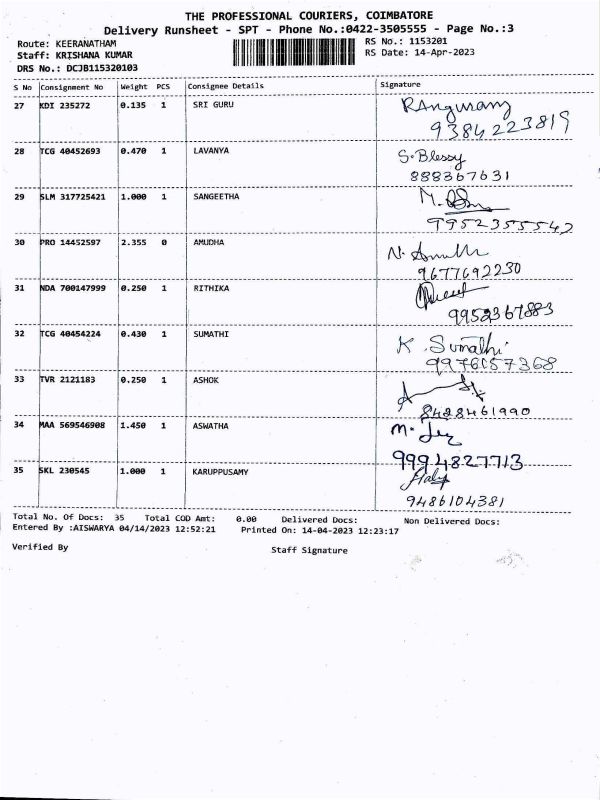 THE PROFESSIONAL COURIERS, COIMBATORE
Delivery Runsheet - SPT - Phone No.:0422-3505555 - Page No.:3
Route: KEERANATHAM
RS No.: 1153201
Staff: KRISHANA KUMAR
RS Date: 14-Apr-2023
DRS No.: DCJB115320103
S No Consignment No Weight PCS Consignee Details Signature
27 KDI 235272 0.135 1 SRI GURU
9384223819
28 TCG 40452693 0.470 1 LAVANYA S. Blessy
888367631
29 SLM 317725421 1.000 1 SANGEETHA M.
9952355542
30 PRO 14452597 2.355 0 AMUDHA N.
9677692230
31 NDA 700147999 0.250 1 RITHIKA
9952367883
32 TCG 40454224 0.430 1 SUMATHI K. Sumathi
9976057368
33 TVR 2121183 0.250 1 ASHOK
8428461990
34 MAA 569546908 1.450 1 ASWATHA M.
9994827713
35 SKL 230545 1.000 1 KARUPPUSAMY
9486104381
Total No. Of Docs: 35 Total COD Amt: 0.00 Delivered Docs: Non Delivered Docs:
Entered By :AISWARYA 04/14/2023 12:52:21 Printed On: 14-04-2023 12:23:17
Verified By
Staff Signature